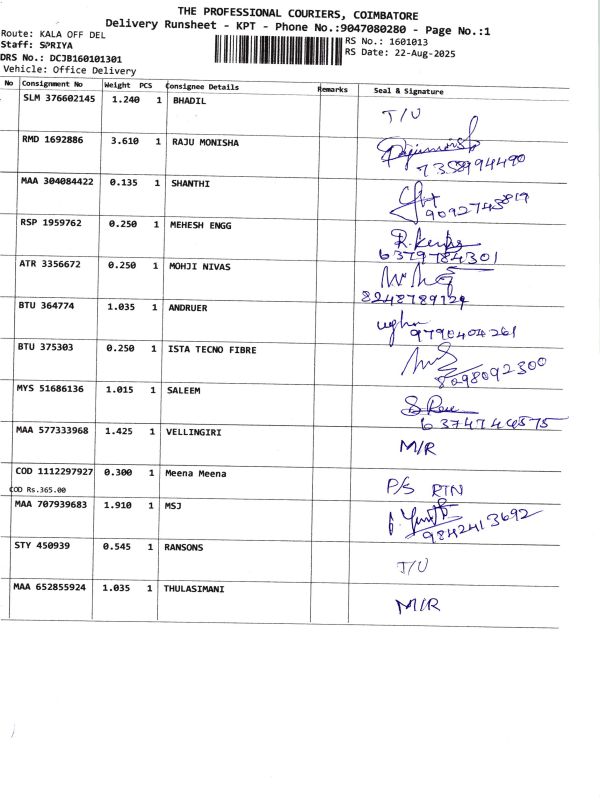 THE PROFESSIONAL COURIERS, COIMBATORE
Delivery Runsheet - KPT - Phone No.:9047080280 - Page No.:1
Route: KALA OFF DEL RS No.: 1601013
Staff: SPRIYA RS Date: 22-Aug-2025
DRS No.: DCJB160101301
Vehicle: Office Delivery
No Consignment No Weight PCS Consignee Details Remarks Seal & Signature
SLM 376602145 1.240 1 BHADIL T/U
RMD 1692886 3.610 1 RAJU MONISHA
7358994490
MAA 304084422 0.135 1 SHANTHI
RSP 1959762 0.250 1 MEHESH ENGG
6379784301
ATR 3356672 0.250 1 MOHJI NIVAS
8248789129
BTU 364774 1.035 1 ANDRUER
9790404261
BTU 375303 0.250 1 ISTA TECNO FIBRE
8098092300
MYS 51686136 1.015 1 SALEEM
MAA 577333968 1.425 1 VELLINGIRI M/R
COD 1112297927 0.300 1 Meena Meena P/S RTN
COD Rs.365.00
MAA 707939683 1.910 1 MSJ
9842413692
STY 450939 0.545 1 RANSONS T/U
MAA 652855924 1.035 1 THULASIMANI M/R